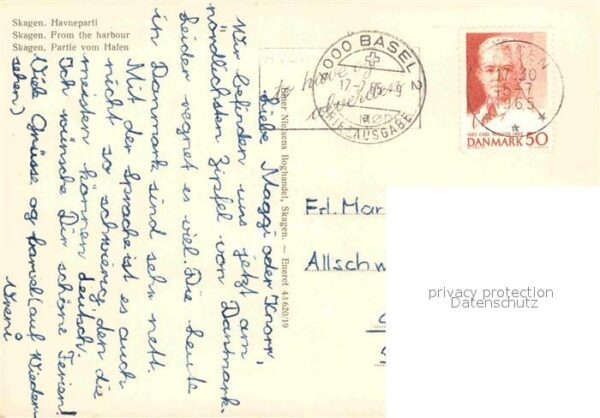 Skagen. Havneparti
Skagen. From the harbour
Skagen. Partie vom Hafen
Liebe Maggi oder Knorr,
Wir befinden uns jetzt am
nördlichsten Zipfel von Dänmark.
Leider regnet es viel. Die Leute
in Dänmark sind sehr nett.
Mit der Sprache ist es auch
nicht so schwierig, den die
meisten können deutsch.
Ich wünsche Dir schöne Ferien!
Viele Grüsse og farvel (auf Wieder-
sehen)
Vreni
Einer Nielsens Boghandel, Skagen. — Eneret 43 620/19
4000 BASEL 2
17-7
BRIEFAUSGABE
17.30
5-7
1965
DANMARK 50
Frl. Mar
Allschw
privacy protection
Datenschutz